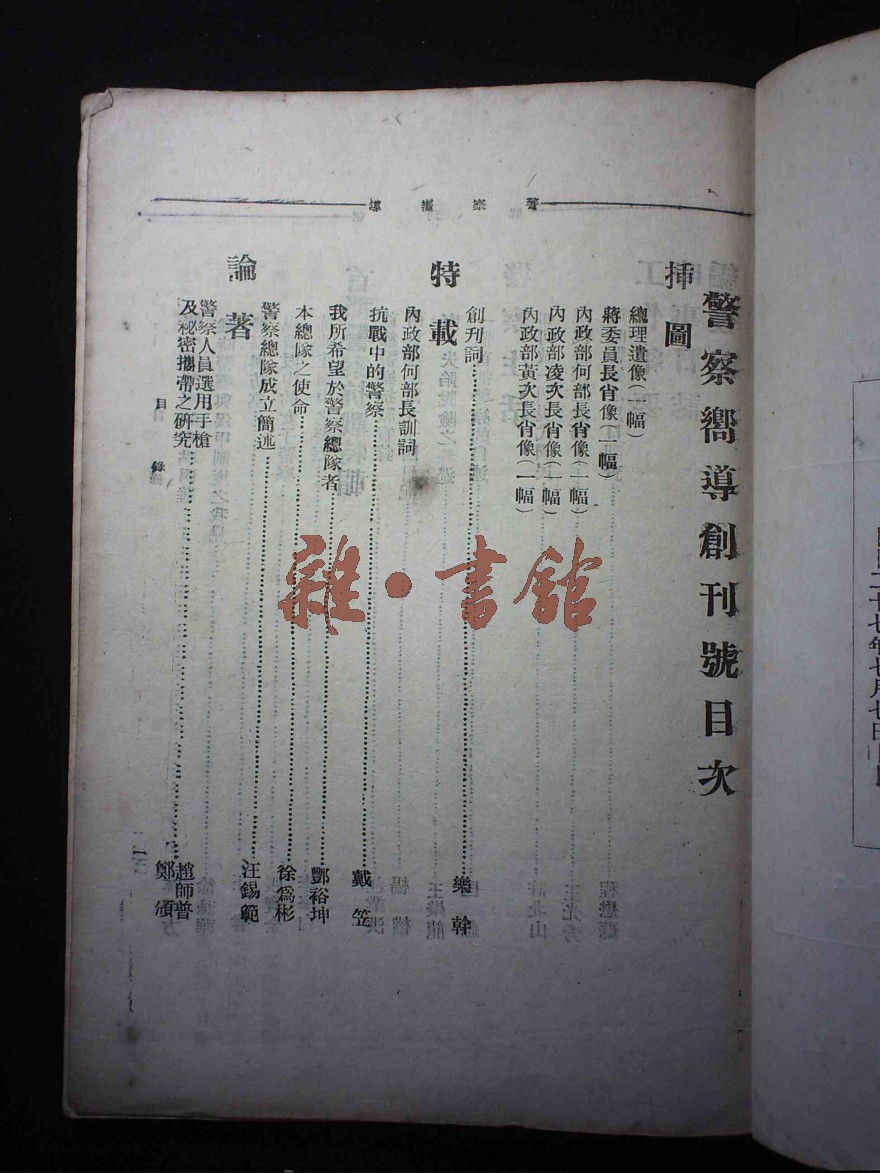 警察嚮導
警察嚮導創刊號目次
挿圖
總理遺像(一幅)
蔣委員長肖像(一幅)
內政部何部長肖像(一幅)
內政部凌次長肖像(一幅)
內政部黃次長肖像(一幅)
特載
創刊詞 樂幹
內政部何部長訓詞
抗戰中的警察 戴笠
我所希望於警察總隊者 酆裕坤
本總隊之使命 徐爲彬
警察總隊成立簡述 汪錫範
論著
警察人員選用手槍
及秘密攜帶之研究 趙師普
鄭頒
目錄
雜·書館
二十七年七月七日